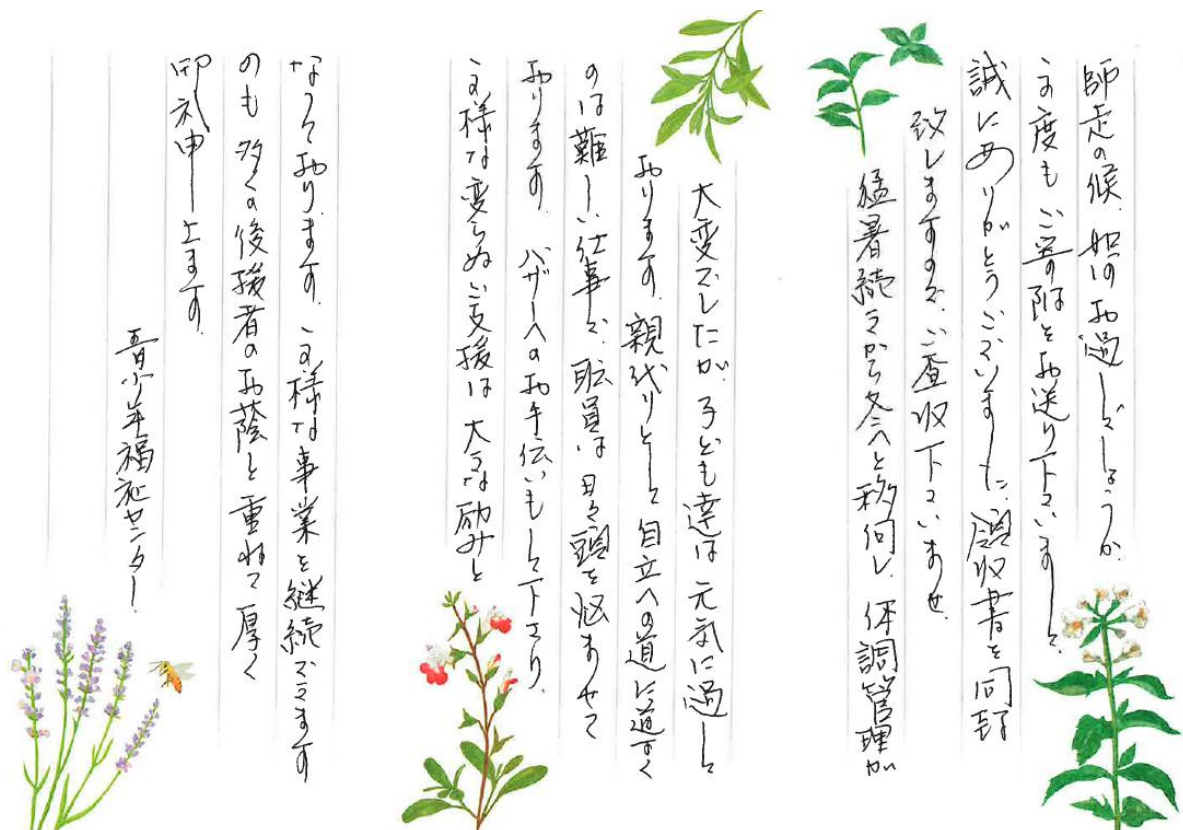 師走の候、如何お過しでしょうか。
この度もご寄附をお送り下さいまして、
誠にありがとうございました。領収書を同封
致しますので、ご査収下さいませ。
猛暑続きから冬へと移向し、体調管理が
大変でしたが、子ども達は元気に過して
おります。親代りとして自立への道に導く
のは難しい仕事で、職員は日々頭を悩ませて
おります。バザーへのお手伝いもして下さり、
この様な変らぬご支援は大きな励みと
なっております。この様な事業を継続できます
のも多くの後援者のお蔭と重ねて厚く
御礼申し上ます。
青少年福祉センター